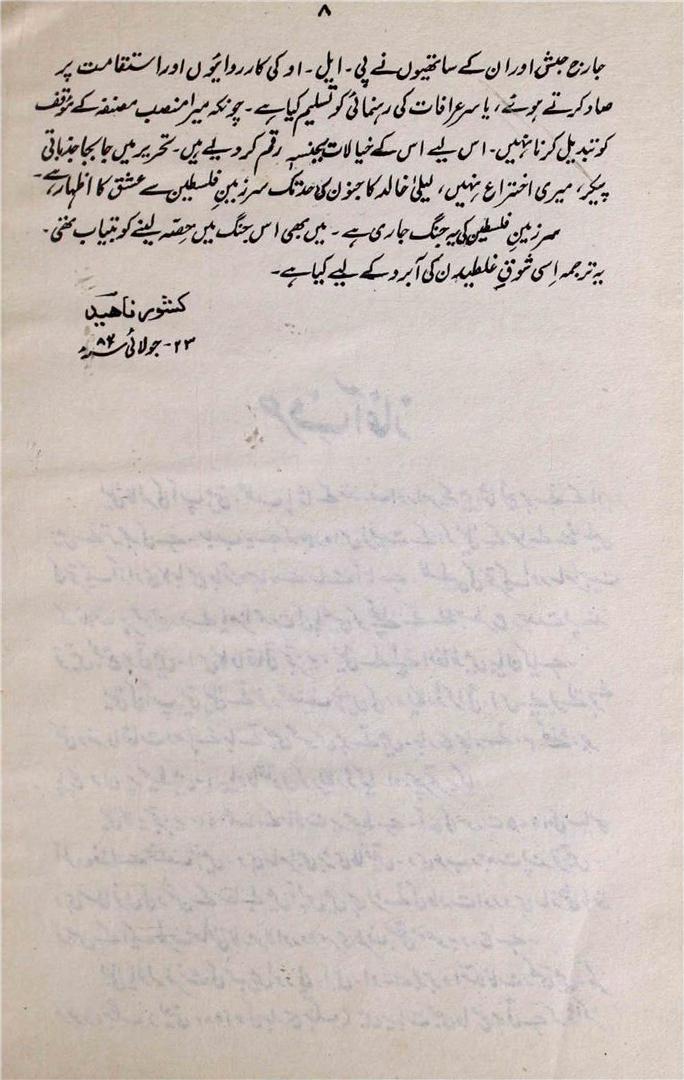 ۸
جارج حبش اور ان کے ساتھیوں نے پی۔ ایل۔ او کی کارروائیوں اور استقامت پر
صاد کرتے ہوئے، یاسر عرافات کی رہنمائی کو تسلیم کیا ہے۔ چونکہ میرا منصب مصنفہ کے مؤقف
کو تبدیل کرنا نہیں۔ اس لیے اس کے خیالات بجنسہٖ رقم کر دیے ہیں۔ تحریر میں جابجا جذباتی
پیکر، میری اختراع نہیں، لیلیٰ خالد کا جنون کی حد تک سرزمینِ فلسطین سے عشق کا اظہار ہے۔
سرزمینِ فلسطین کی یہ جنگ جاری ہے۔ میں بھی اس جنگ میں حصّہ لینے کو بیتاب تھی۔
یہ ترجمہ اِسی شوقِ غلطیدن کی آبرو کے لیے کیا ہے۔
کشور ناھید
۲۳۔ جولائی ۸۴ء